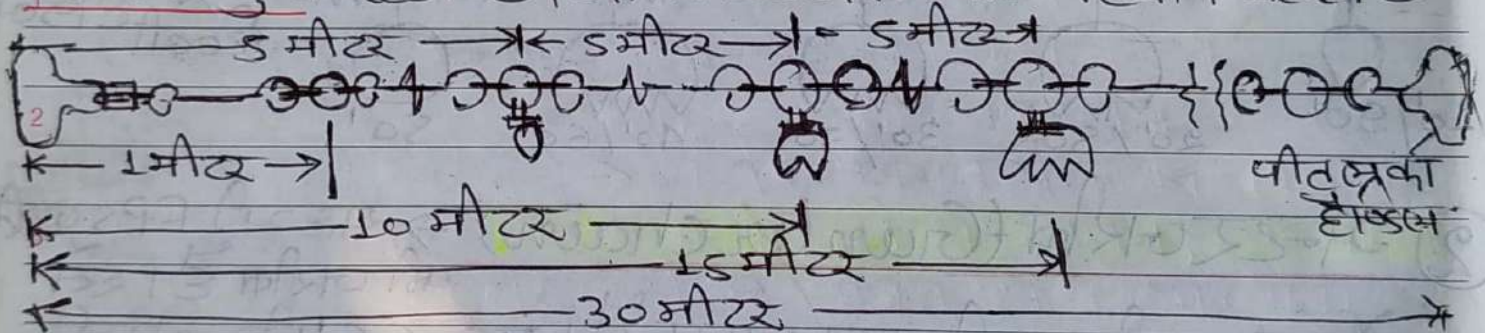 5 मीटर 5 मीटर 5 मीटर
2
1 मीटर
पीतल का
हैण्डल
10 मीटर
15 मीटर
30 मीटर